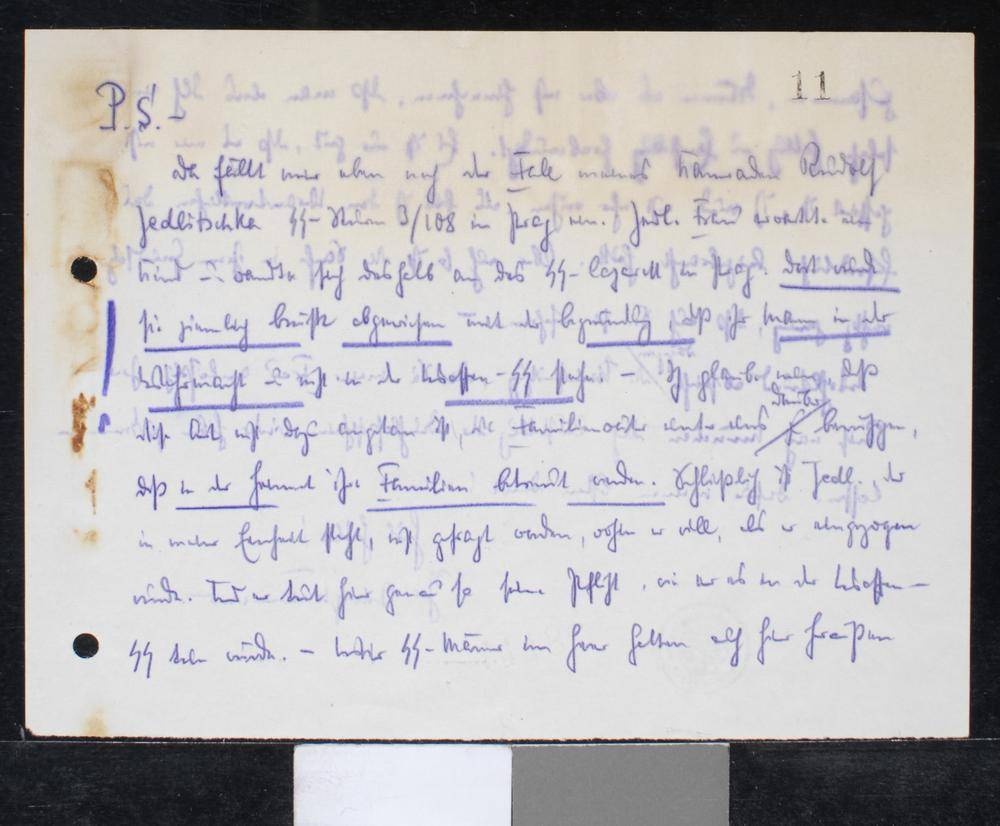 11
P.S!
Da fällt mir eben noch der Fall meines Kameraden Rudolf
Jedlitschka SS-Sturm 3/108 in Prag ein. Jedl. Frau erwartete ein
Kind u. wandte sich deshalb an das SS-Lazarett in Prag. Dort wurde
sie ziemlich brüsk abgewiesen mit der Begründung, daß ihr Mann in der
Wehrmacht u. nicht in der Waffen-SS stehe. — Ich glaube, daß
diese Art nicht dazu angetan ist, die Familienväter unter uns darüber zu beruhigen,
daß in der Heimat ihre Familien betreut werden. Schließlich ist Jedl., der
in meiner Einheit steht, nicht gefragt worden, wohin er will, als er eingezogen
wurde. Und er tut hier genau so seine Pflicht, wie er es in der Waffen-
SS tun würde. — Wir SS-Männer im Heer halten auch hier draußen